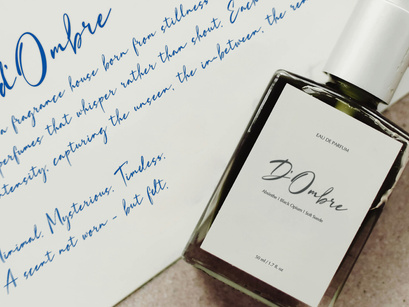 d'Ombre
a fragrance house born from stillness
perfumes that whisper rather than shout. Each
intensity, capturing the unseen, the in-between, the
Minimal. Mysterious. Timeless.
A scent not worn - but felt.
EAU DE PARFUM
D'Ombre
Absinthe | Black Opium | Soft Suede
50 ml / 1.7 fl. oz